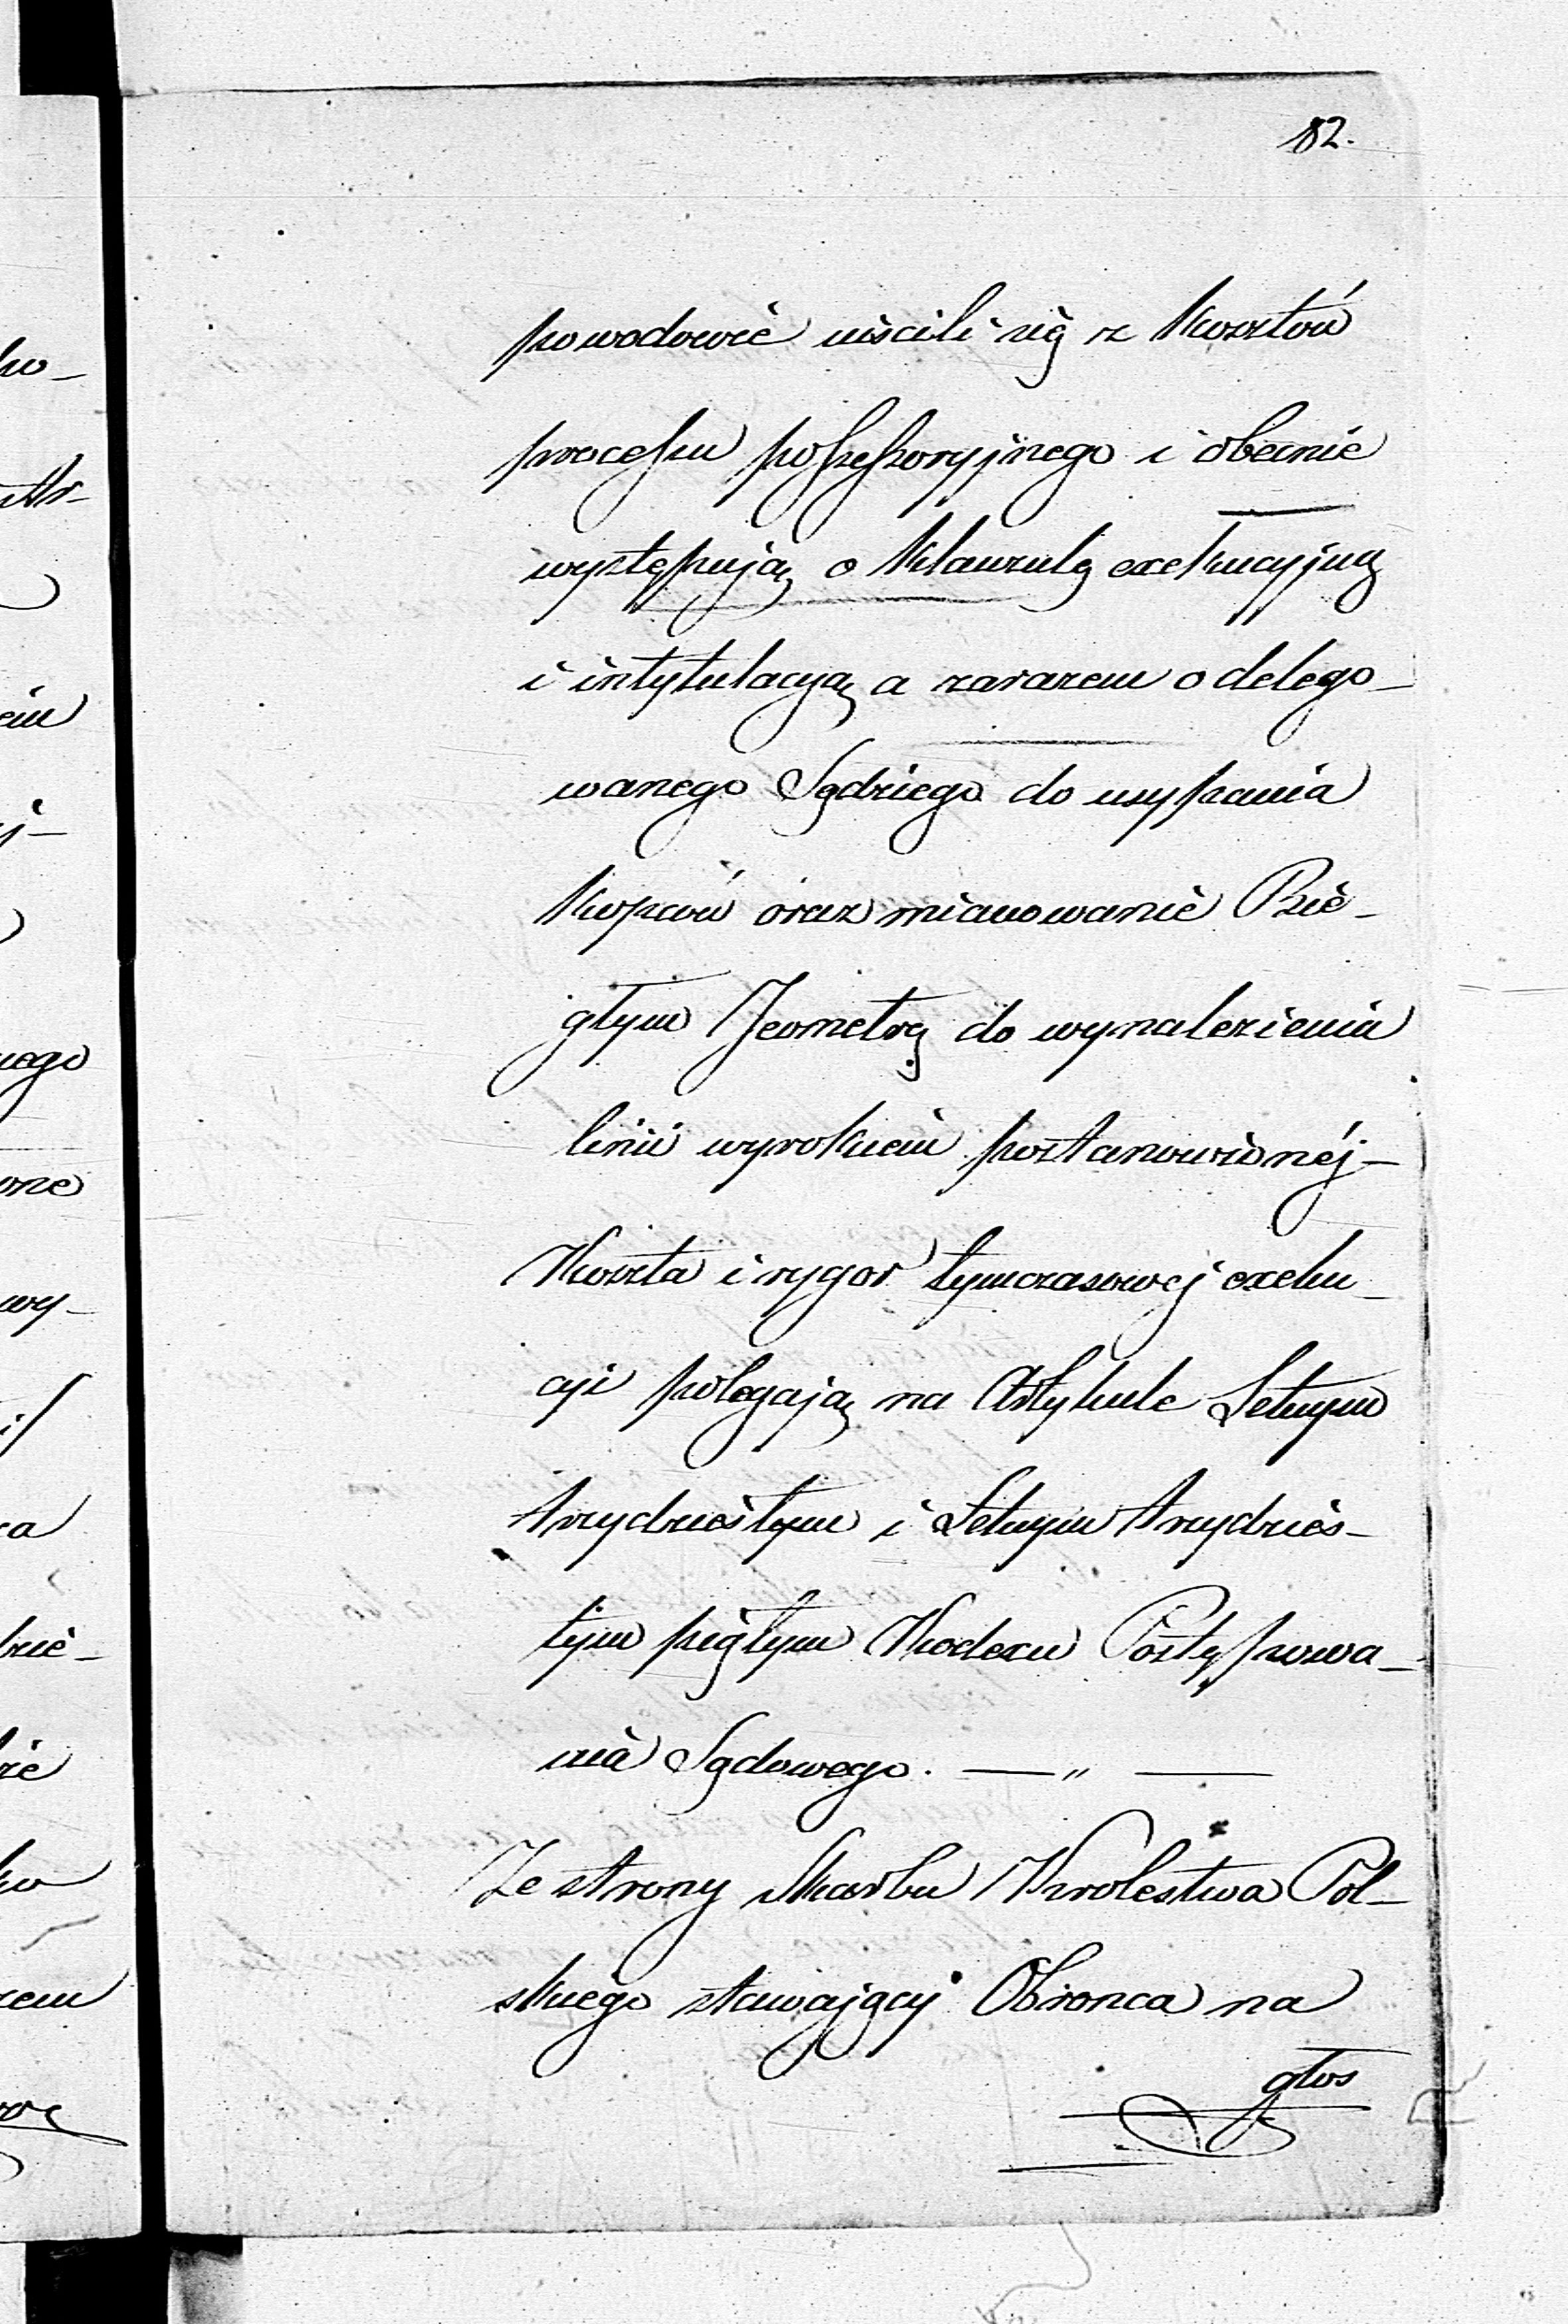 82.
powodowie uiścili się z kosztów
processu possessoryjnego i obecnie
występują o klauzulę exekucyjną
i intytulacyą a zarazem o delego-
wanego Sędziego do usypania
kopców oraz mianowanie Bie-
głym Jeometrę do wynalezienia
linii wyrokiem postanowionéj -
Koszta i rygor tymczasowej exeku-
cyi polegają na Artykule Setnym
trzydziestym i Setnym trzydzies-
tym piętym Kodexu Postępowa-
nia Sądowego. — „ —
Ze strony Skarbu Krolestwa Pol-
skiego stawający Obronca na
głos